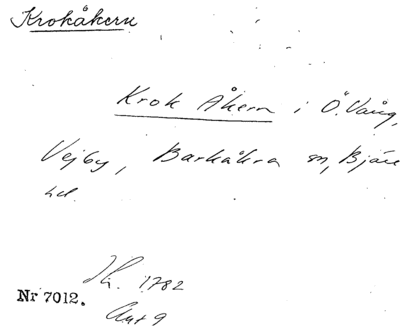 Krokåkern
Krok Åkern i Ö. Vång,
Vejby, Barkåkra sn, Bjäre
hd.
1782
Nr 7012.
Akt 9